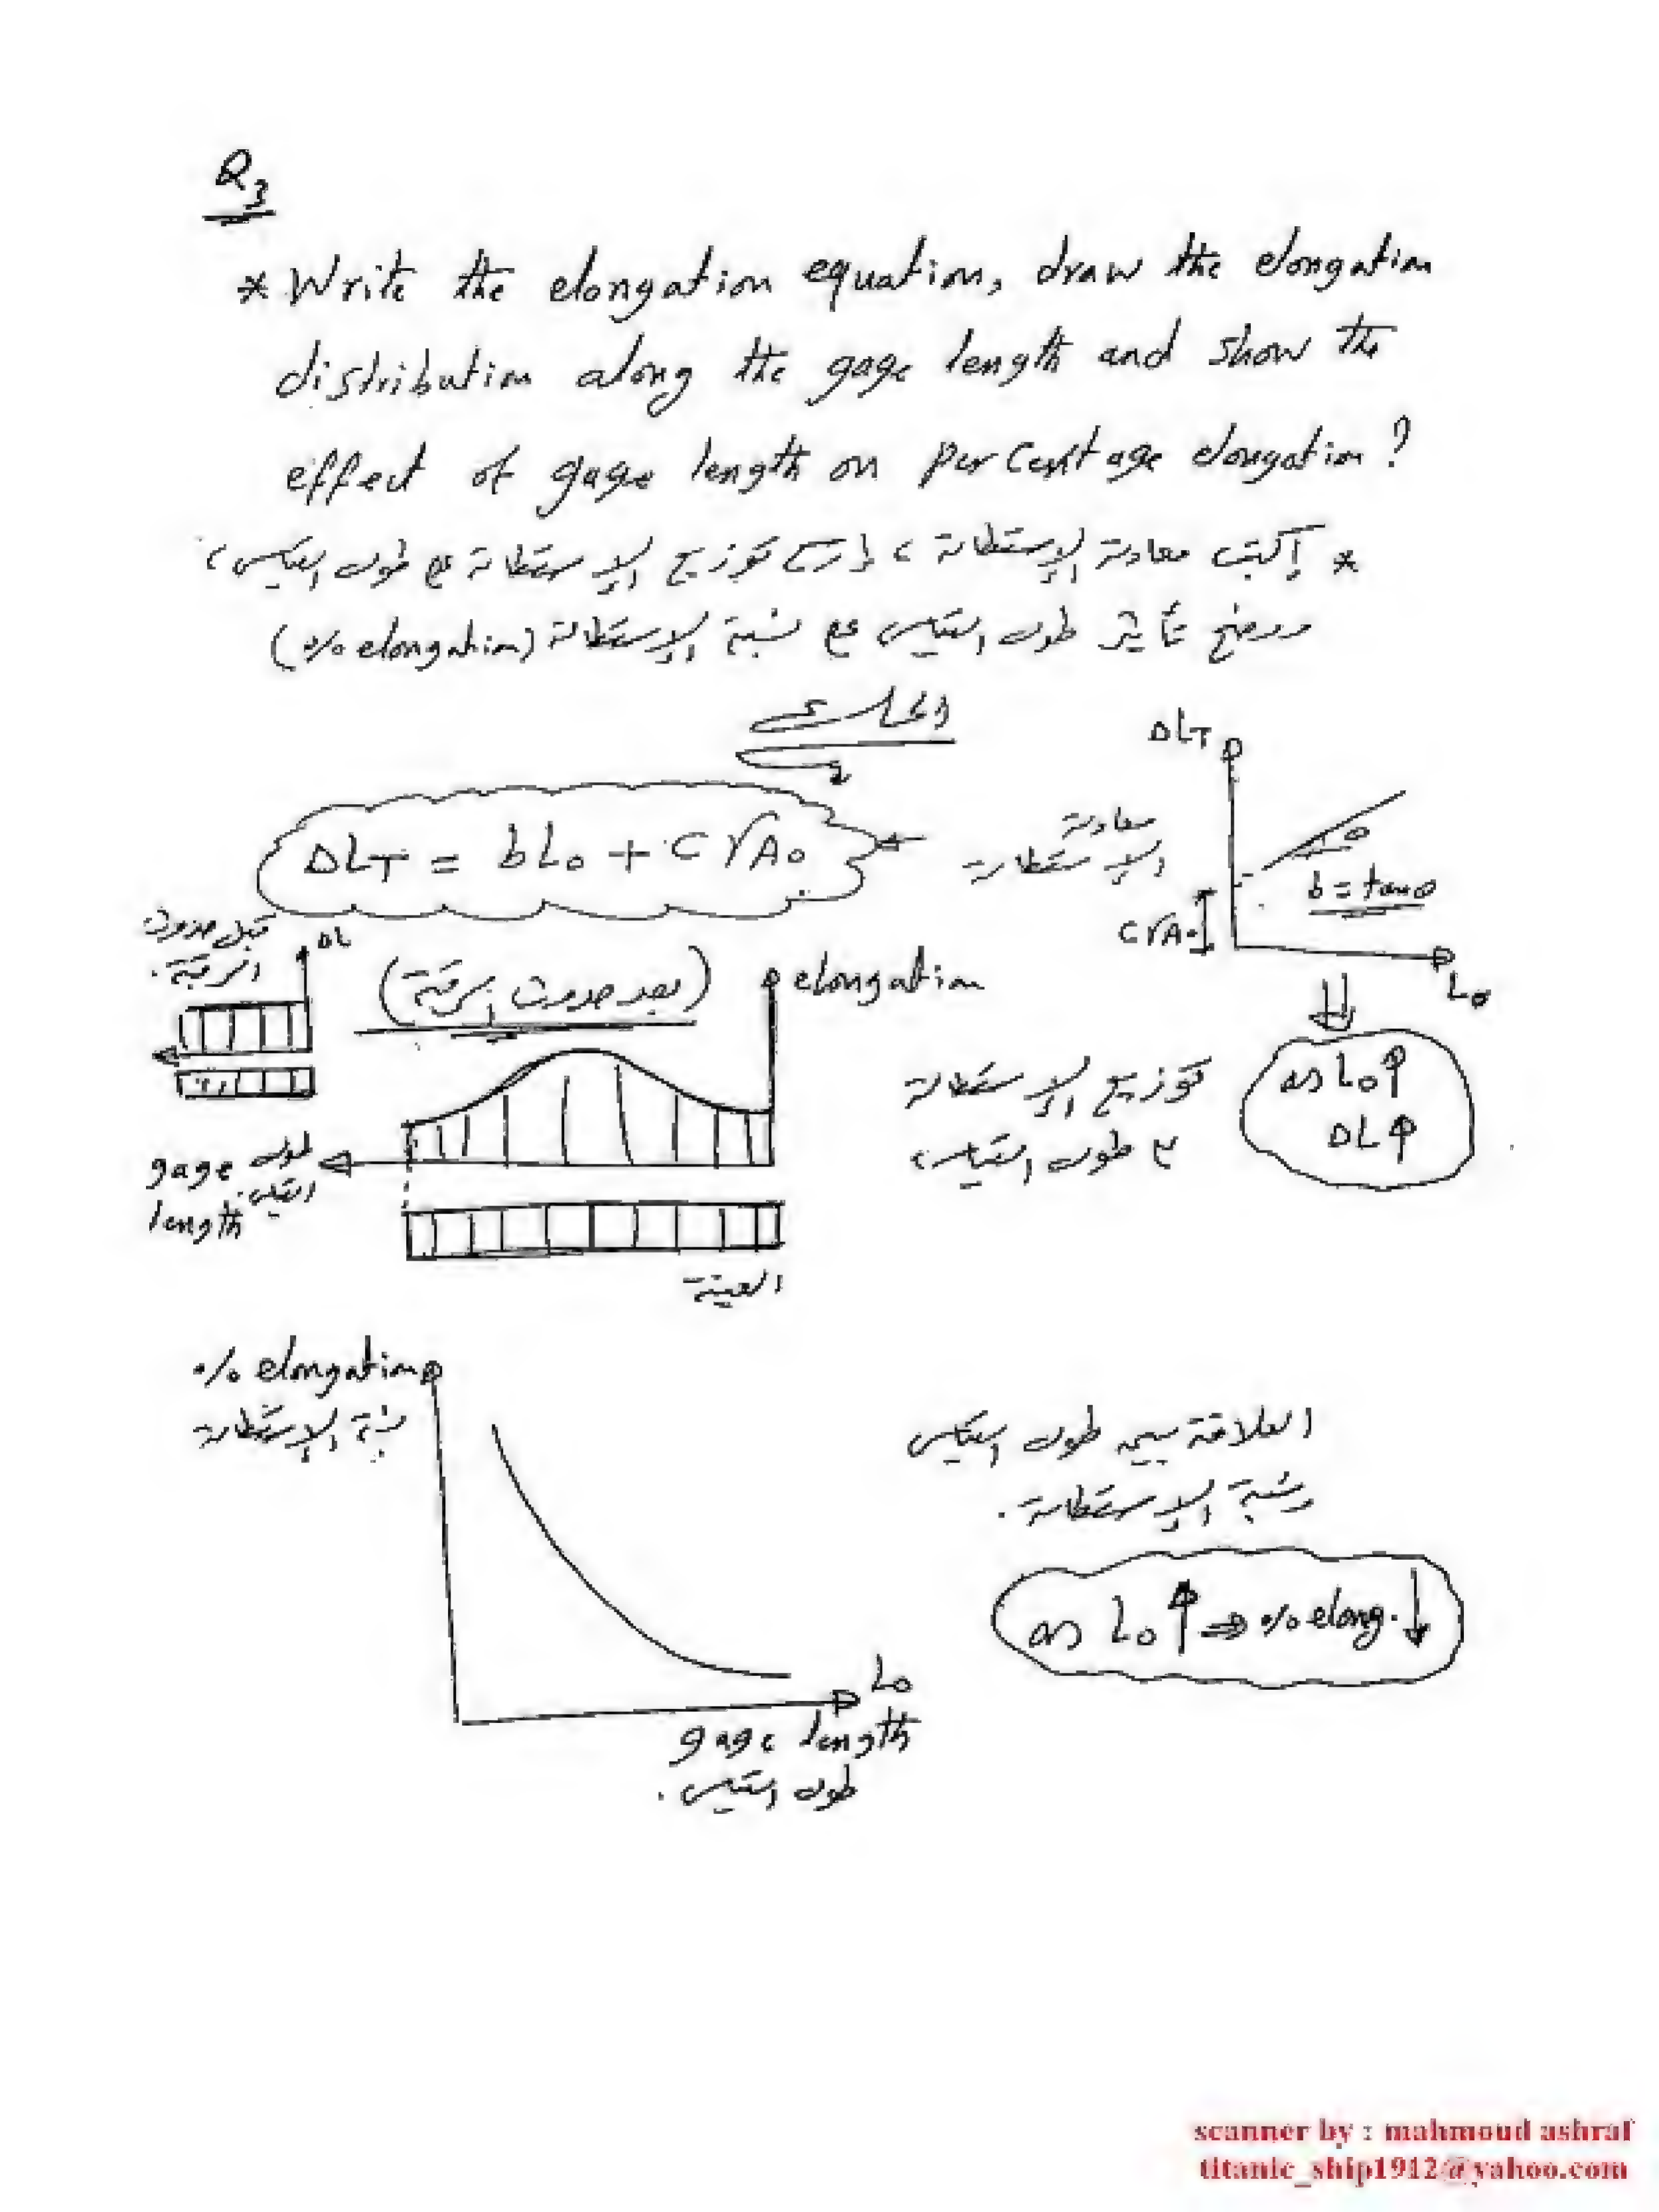 Q3
* Write the elongation equation, draw the elongation
distribution along the gage length and show the
effect of gage length on percentage elongation?
* إكتب معادلة الإستطالة، إرسم توزيع الإستطالة مع طول القياس،
ووضح تأثير طول القياس مع نسبة الإستطالة (% elongation)
ΔLT
معادلة
الإستطالة
ΔLT = bLo + C√Ao
θ
b = tanθ
C√Ao
Lo
قبل حدوث
الرقبة.
ΔL
(بعد حدوث الرقبة)
elongation
as Lo↑
ΔL↑
توزيع الإستطالة
مع طول القياس
gage length
طول القياس
العينة
% elongation
نسبة الإستطالة
العلاقة بين طول القياس
ونسبة الإستطالة.
as Lo↑ ⇒ % elong.↓
Lo
gage length
طول القياس.
scanner by : mahmoud ashraf
titanic_ship1912@yahoo.com